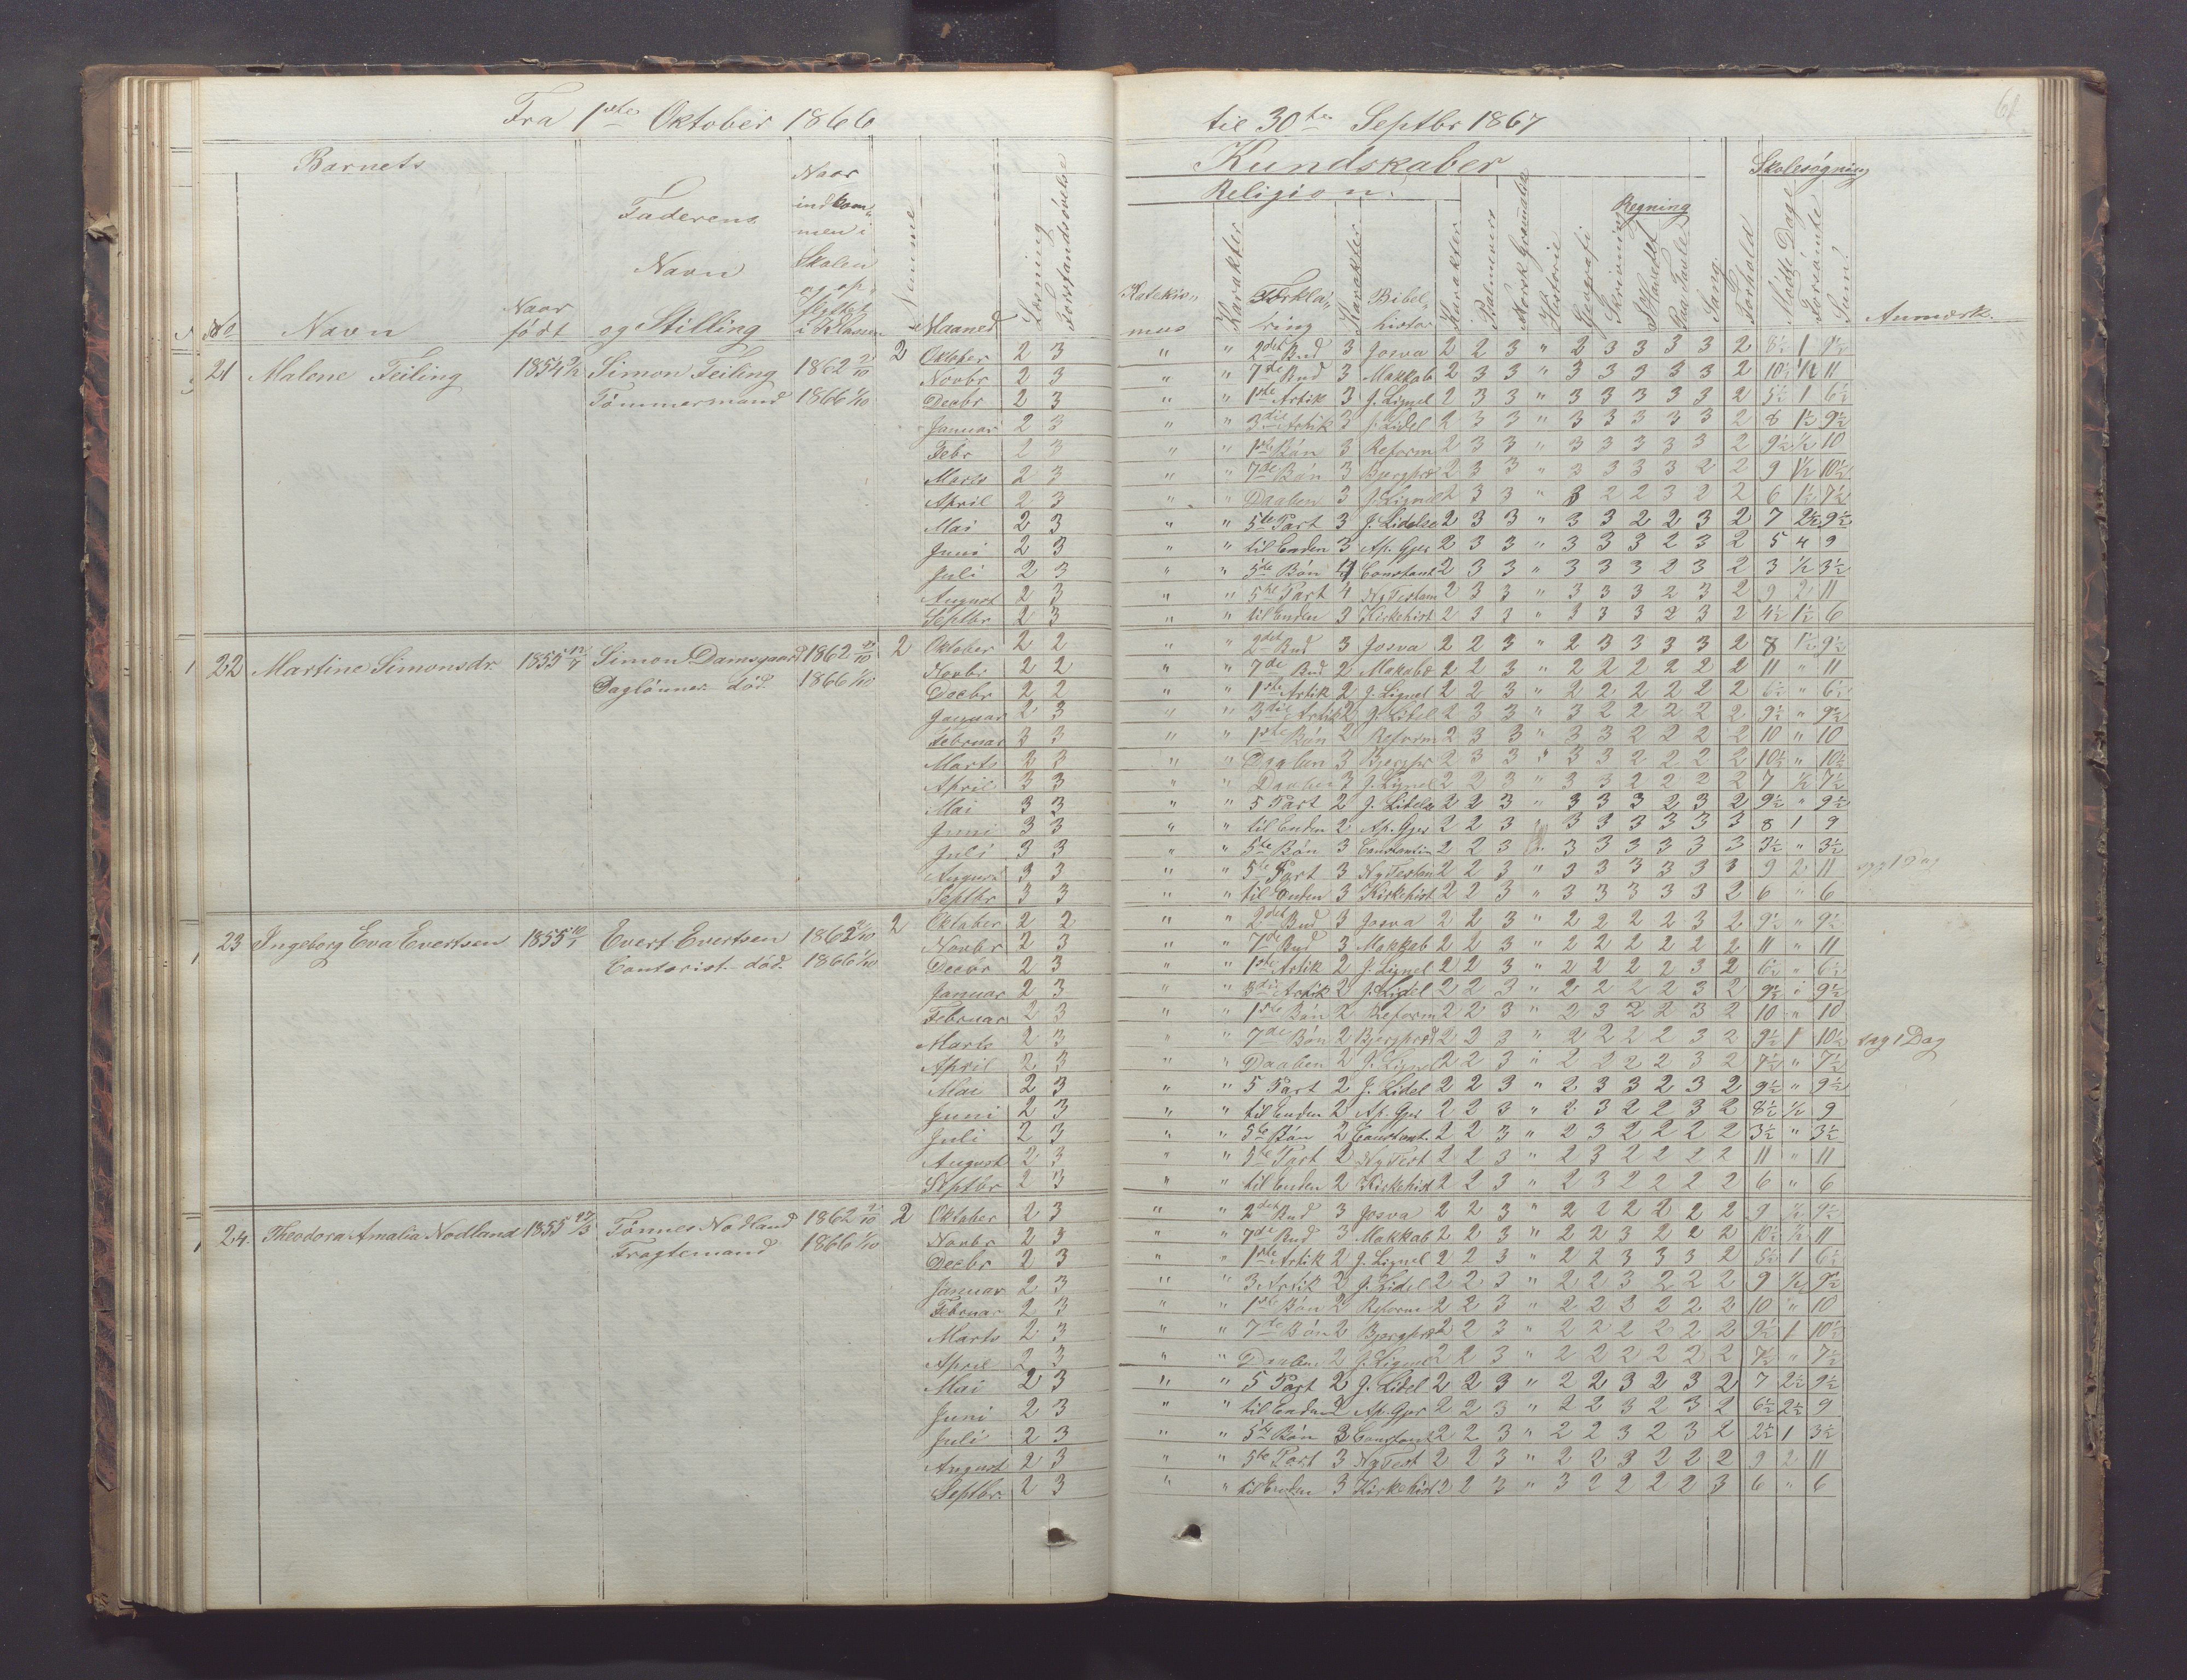 Fra 1ste Oktober 1866 til 30te Septbr 1867
61
Barnets
Kundskaber
Skolesøgning
Religion.
Regning
No Navn Naar født Faderens Navn og Stilling Naar indkommen i Skolen og opflyttet i Klassen Nemme Maaned Læsning Forstandsøvelse
Katekismus Karakter Forklaring Karakter Bibelhistor Karakter Psalmevers Norsk Gramatik Historie Geografi Skrivning I Hovedet Paa Tavle Sang Forhold Mødte Dage Forsømte Sum Anmærk.
21 Malene Feiling 1854 Simon Feiling 1862 2 Oktober 2 3 " " 2det Bud 3 Josva 2 2 3 " 2 3 3 3 3 2 8½ 1 9½
Tømmermand 1866 1/10
Novbr 2 3 " " 7de Bud 3 Makkab 2 3 3 " 3 3 3 3 3 2 10½ ½ 11
Decbr 2 3 " " 1ste Artik 3 J. Lignel 2 3 3 " 3 3 3 3 3 2 5½ 1 6½
Januar 2 3 " " 3die Artik 3 J. Lidel 2 3 3 " 3 3 3 3 3 2 8 1½ 9½
Febr 2 3 " " 1ste Bøn 3 Reform 2 3 3 " 3 3 3 3 3 2 9½ ½ 10
Marts 2 3 " " 7de Bøn 3 Bjergpræ 2 3 3 " 3 3 3 3 2 2 9 1½ 10½
April 2 3 " " Daaben 3 J. Lignel 2 3 3 " 3 2 2 3 2 2 6 1½ 7½
Mai 2 3 " " 5te Part 3 J. Lidelse 2 3 3 " 3 3 2 2 3 2 7 2½ 9½
Juni 2 3 " " til Enden 3 Ap. Gjer 2 3 3 " 3 3 3 2 3 2 5 4 9
Juli 2 3 " " 5te Bøn 4 Constant 2 3 3 " 3 3 3 2 3 2 3 ½ 3½
August 2 3 " " 5te Part 4 Ny Testam 2 3 3 " 3 3 3 2 3 2 9 2 11
Septbr 2 3 " " til Enden 3 Kirkehist 2 3 3 " 3 3 3 2 3 2 4½ 1½ 6
22 Martine Simonsdr. 1855 Simon Damsgaard 1862 2 Oktober 2 2 " " 2det Bud 3 Josva 2 2 3 " 2 3 3 3 3 2 8 1½ 9½
Daglønner død. 1866 1/10
Novbr 2 2 " " 7de Bud 2 Makabæ 2 2 3 " 2 2 2 2 2 2 11 " 11
Decbr 2 2 " " 1ste Artik 2 J. Lignel 2 2 3 " 2 2 2 2 2 2 6½ " 6½
Januar 2 3 " " 3die Artik 2 J. Lidel 2 3 3 " 3 2 2 2 2 2 9½ " 9½
Februar 3 3 " " 1ste Bøn 2 Reform 2 3 3 " 3 3 2 2 2 2 10 " 10
Marts 3 3 " " Daaben 3 Bjergpr 2 3 3 " 3 3 2 2 2 2 10½ " 10½
April 3 3 " " Daaben 3 J. Lignel 2 2 3 " 3 3 2 2 2 2 7 ½ 7½
Mai 3 3 " " 5 Part 2 J. Lidelse 2 2 3 " 3 3 3 2 3 2 9½ " 9½
Juni 3 3 " " til Enden 2 Ap. Gjer 2 2 3 " 3 3 3 3 3 3 8 1 9
Juli 3 3 " " 5te Bøn 3 Constantin 2 2 3 " 3 3 3 3 3 3 3½ " 3½
August 3 3 " " 5te Part 3 Ny Testam 2 2 3 " 3 3 3 3 3 3 9 2 11 syg 1 Dag
Septbr 3 3 " " til Enden 3 Kirkehist 2 2 3 " 3 3 3 3 3 2 6 " 6
23 Ingeborg Eva Evertsen 1855 Evert Evertsen 1862 2 Oktober 2 2 " " 2det Bud 3 Josva 2 2 3 " 2 2 2 2 3 2 9½ " 9½
Contorist død. 1866 1/10
Novbr 2 3 " " 7de Bud 3 Makkab 2 2 3 " 2 2 2 2 2 2 11 " 11
Decbr 2 3 " " 1ste Artik 2 J. Lignel 2 2 3 " 2 2 2 2 3 2 6½ " 6½
Januar 2 3 " " 3die Artik 2 J. Lidel 2 2 3 " 2 2 2 2 3 2 9½ " 9½
Februar 2 3 " " 1ste Bøn 2 Reform 2 2 3 " 2 3 2 2 3 2 10 " 10
Marts 2 3 " " 7de Bøn 2 Bjergpræd 2 2 3 " 2 2 2 2 3 2 9½ 1 10½ syg 1 Dag
April 2 3 " " Daaben 2 J. Lignel 2 2 3 " 2 2 2 2 3 2 7½ " 7½
Mai 2 3 " " 5 Part 2 J. Lidel 2 2 3 " 2 3 3 2 3 2 9½ " 9½
Juni 2 3 " " til Enden 2 Ap. Gjer 2 2 3 " 2 3 2 2 3 2 8½ ½ 9
Juli 2 3 " " 5te Bøn 2 Constant. 2 2 3 " 2 3 2 2 2 2 3½ " 3½
August 2 3 " " 5te Part 2 Ny Test 2 2 3 " 2 3 2 2 2 2 11 " 11
Septbr 2 3 " " til Enden 2 Kirkehist 2 2 3 " 2 3 2 2 2 2 6 " 6
24. Theodora Amalia Nodland 1855 Tønnes Nodland 1862 2 Oktober 2 3 " " 2det Bud 3 Josva 2 2 3 " 2 2 2 2 2 2 9 ½ 9½
Fragtemand 1866 1/10
Novbr 2 3 " " 7de Bud 3 Makkab 2 2 3 " 2 2 3 2 2 2 10½ ½ 11
Decbr 2 3 " " 1ste Artik 2 J. Lignel 2 2 3 " 2 2 3 3 3 2 5½ 1 6½
Januar 2 3 " " 3 Artik 2 J. Lidel 2 2 3 " 2 2 3 2 2 2 9 ½ 9½
Februar 2 3 " " 1ste Bøn 2 Reform 2 2 3 " 2 2 2 2 2 2 10 " 10
Marts 2 3 " " 7de Bøn 2 Bjergpræ 2 2 3 " 2 2 2 2 2 2 9½ 1 10½
April 2 3 " " Daaben 2 J. Lignel 2 2 3 " 2 2 2 2 2 2 7½ " 7½
Mai 2 3 " " 5 Part 2 J. Lidel 2 2 3 " 2 2 3 2 3 2 7 2½ 9½
Juni 2 3 " " til Enden 2 Ap. Gjer 2 2 3 " 2 2 3 2 3 2 6½ 2½ 9
Juli 2 3 " " 5te Bøn 3 Constant 2 2 3 " 2 2 3 2 3 2 2½ 1 3½
August 2 3 " " 5te Part 3 Ny Test 2 2 3 " 2 2 3 2 2 2 9 2 11
Septbr. 2 3 " " til Enden 3 Kirkehist 2 2 3 " 3 2 2 2 2 3 6 " 6